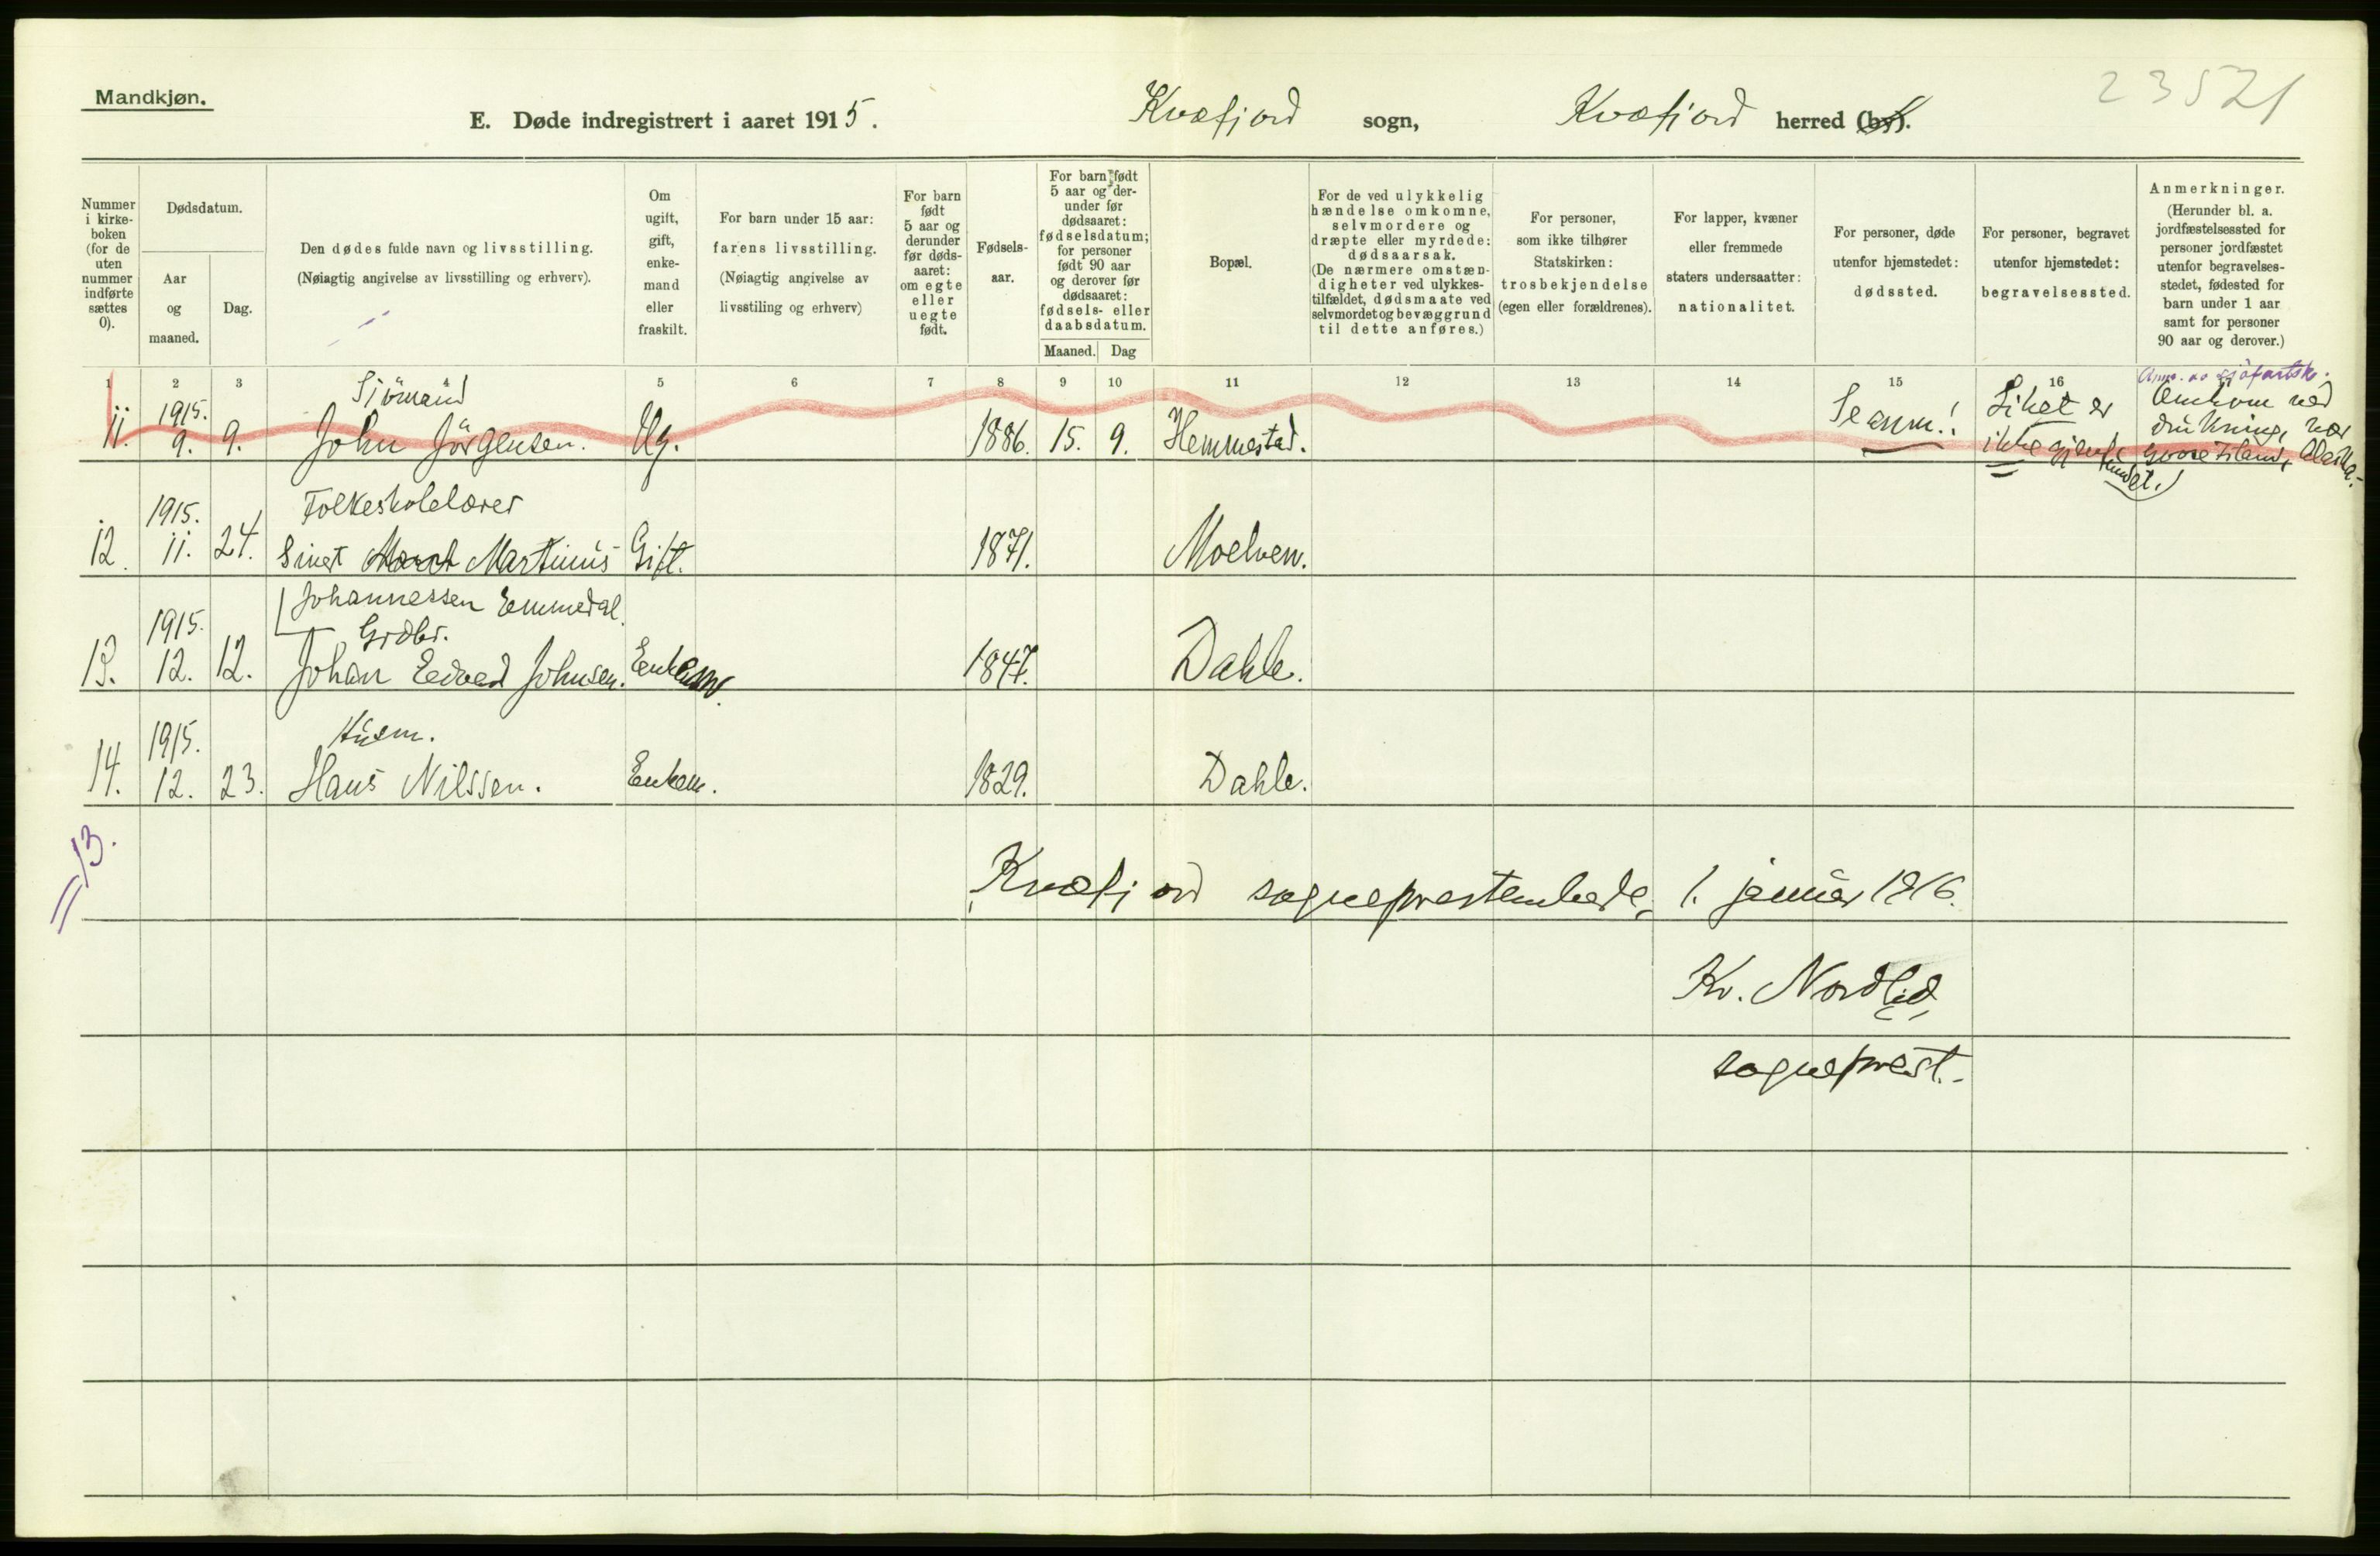 Mandkjøn.
23521
E. Døde indregistrert i aaret 1915. Kvæfjord sogn, Kvæfjord herred (by).
Nummer i kirkeboken (for de uten nummer indførte sættes 0).
Dødsdatum.
Aar og maaned.
Dag.
Den dødes fulde navn og livsstilling.
(Nøiagtig angivelse av livsstilling og erhverv).
Om ugift, gift, enkemand eller fraskilt.
For barn under 15 aar: farens livsstilling.
(Nøiagtig angivelse av livsstiling og erhverv)
For barn født 5 aar og derunder før dødsaaret: om egte eller uegte født.
Fødselsaar.
For barn født 5 aar og derunder før dødsaaret: fødselsdatum; for personer født 90 aar og derover før dødsaaret: fødsels- eller daabsdatum.
Maaned. Dag
Bopæl.
For de ved ulykkelig hændelse omkomne, selvmordere og dræpte eller myrdede: dødsaarsak.
(De nærmere omstændigheter ved ulykkestilfældet, dødsmaate ved selvmordet og bevæggrund til dette anføres.)
For personer, som ikke tilhører Statskirken: trosbekjendelse (egen eller forældrenes).
For lapper, kvæner eller fremmede staters undersaatter: nationalitet.
For personer, døde utenfor hjemstedet: dødssted.
For personer, begravet utenfor hjemstedet: begravelsessted.
Anmerkninger.
(Herunder bl. a. jordfæstelsessted for personer jordfæstet utenfor begravelsesstedet, fødested for barn under 1 aar samt for personer 90 aar og derover.)
1 2 3 4 5 6 7 8 9 10 11 12 13 14 15 16
Sjömand
11. 1915. 9. 9. John Jörgensen. Ug. 1886. 15. 9. Hemmestad. Se anm.! Liket er ikke gjenfundet.
Omkom ved drukning, nær Goose Island, Alaska.
Folkeskolelærer
12. 1915. 11. 24. Sivert Martinus Gift. 1871. Moelven.
Johannessen Emmedal.
Grdbr.
13. 1915. 12. 12. Johan Edvard Johnsen. Enkem. 1847. Dahle.
Husm.
14. 1915. 12. 23. Hans Nilssen. Enkem. 1829. Dahle.
= 13.
Kvæfjord sogneprestembede, 1. januar 1916.
Kr. Nordlid,
sogneprest.